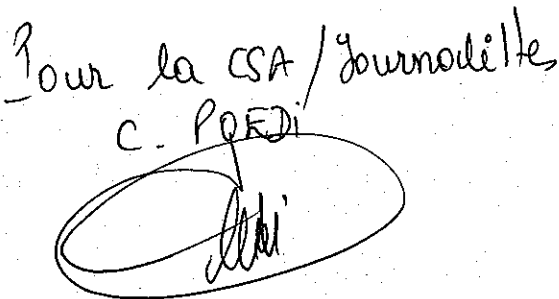 Pour la CSA / Journalistes
C. PREDI